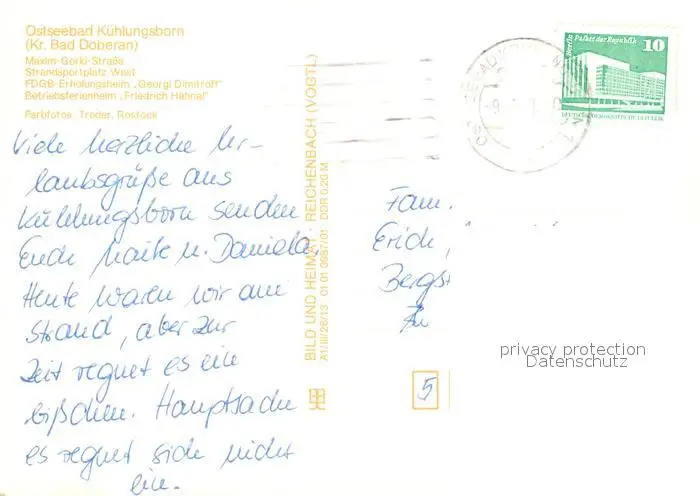 Ostseebad Kühlungsborn
(Kr. Bad Doberan)
Maxim-Gorki-Straße
Strandsportplatz West
FDGB-Erholungsheim „Georgi Dimitroff"
Betriebsferienheim „Friedrich Hähnel"
Farbfotos: Treder, Rostock
Viele herzliche Ur-
laubsgrüße aus
Kühlungsborn senden
Euch Maite u. Daniela.
Heute waren wir am
Strand, aber zur
Zeit regnet es ein
bißchen. Hauptsache
es regnet sich nicht
ein.
BILD UND HEIMAT · REICHENBACH (VOGTL)
A1/III/26/13 01 01 0687/01 DDR 0,20 M
Berlin Palast der Republik
10
DEUTSCHE DEMOKRATISCHE REPUBLIK
Fam.
Erich,
Bergst
5
privacy protection
Datenschutz